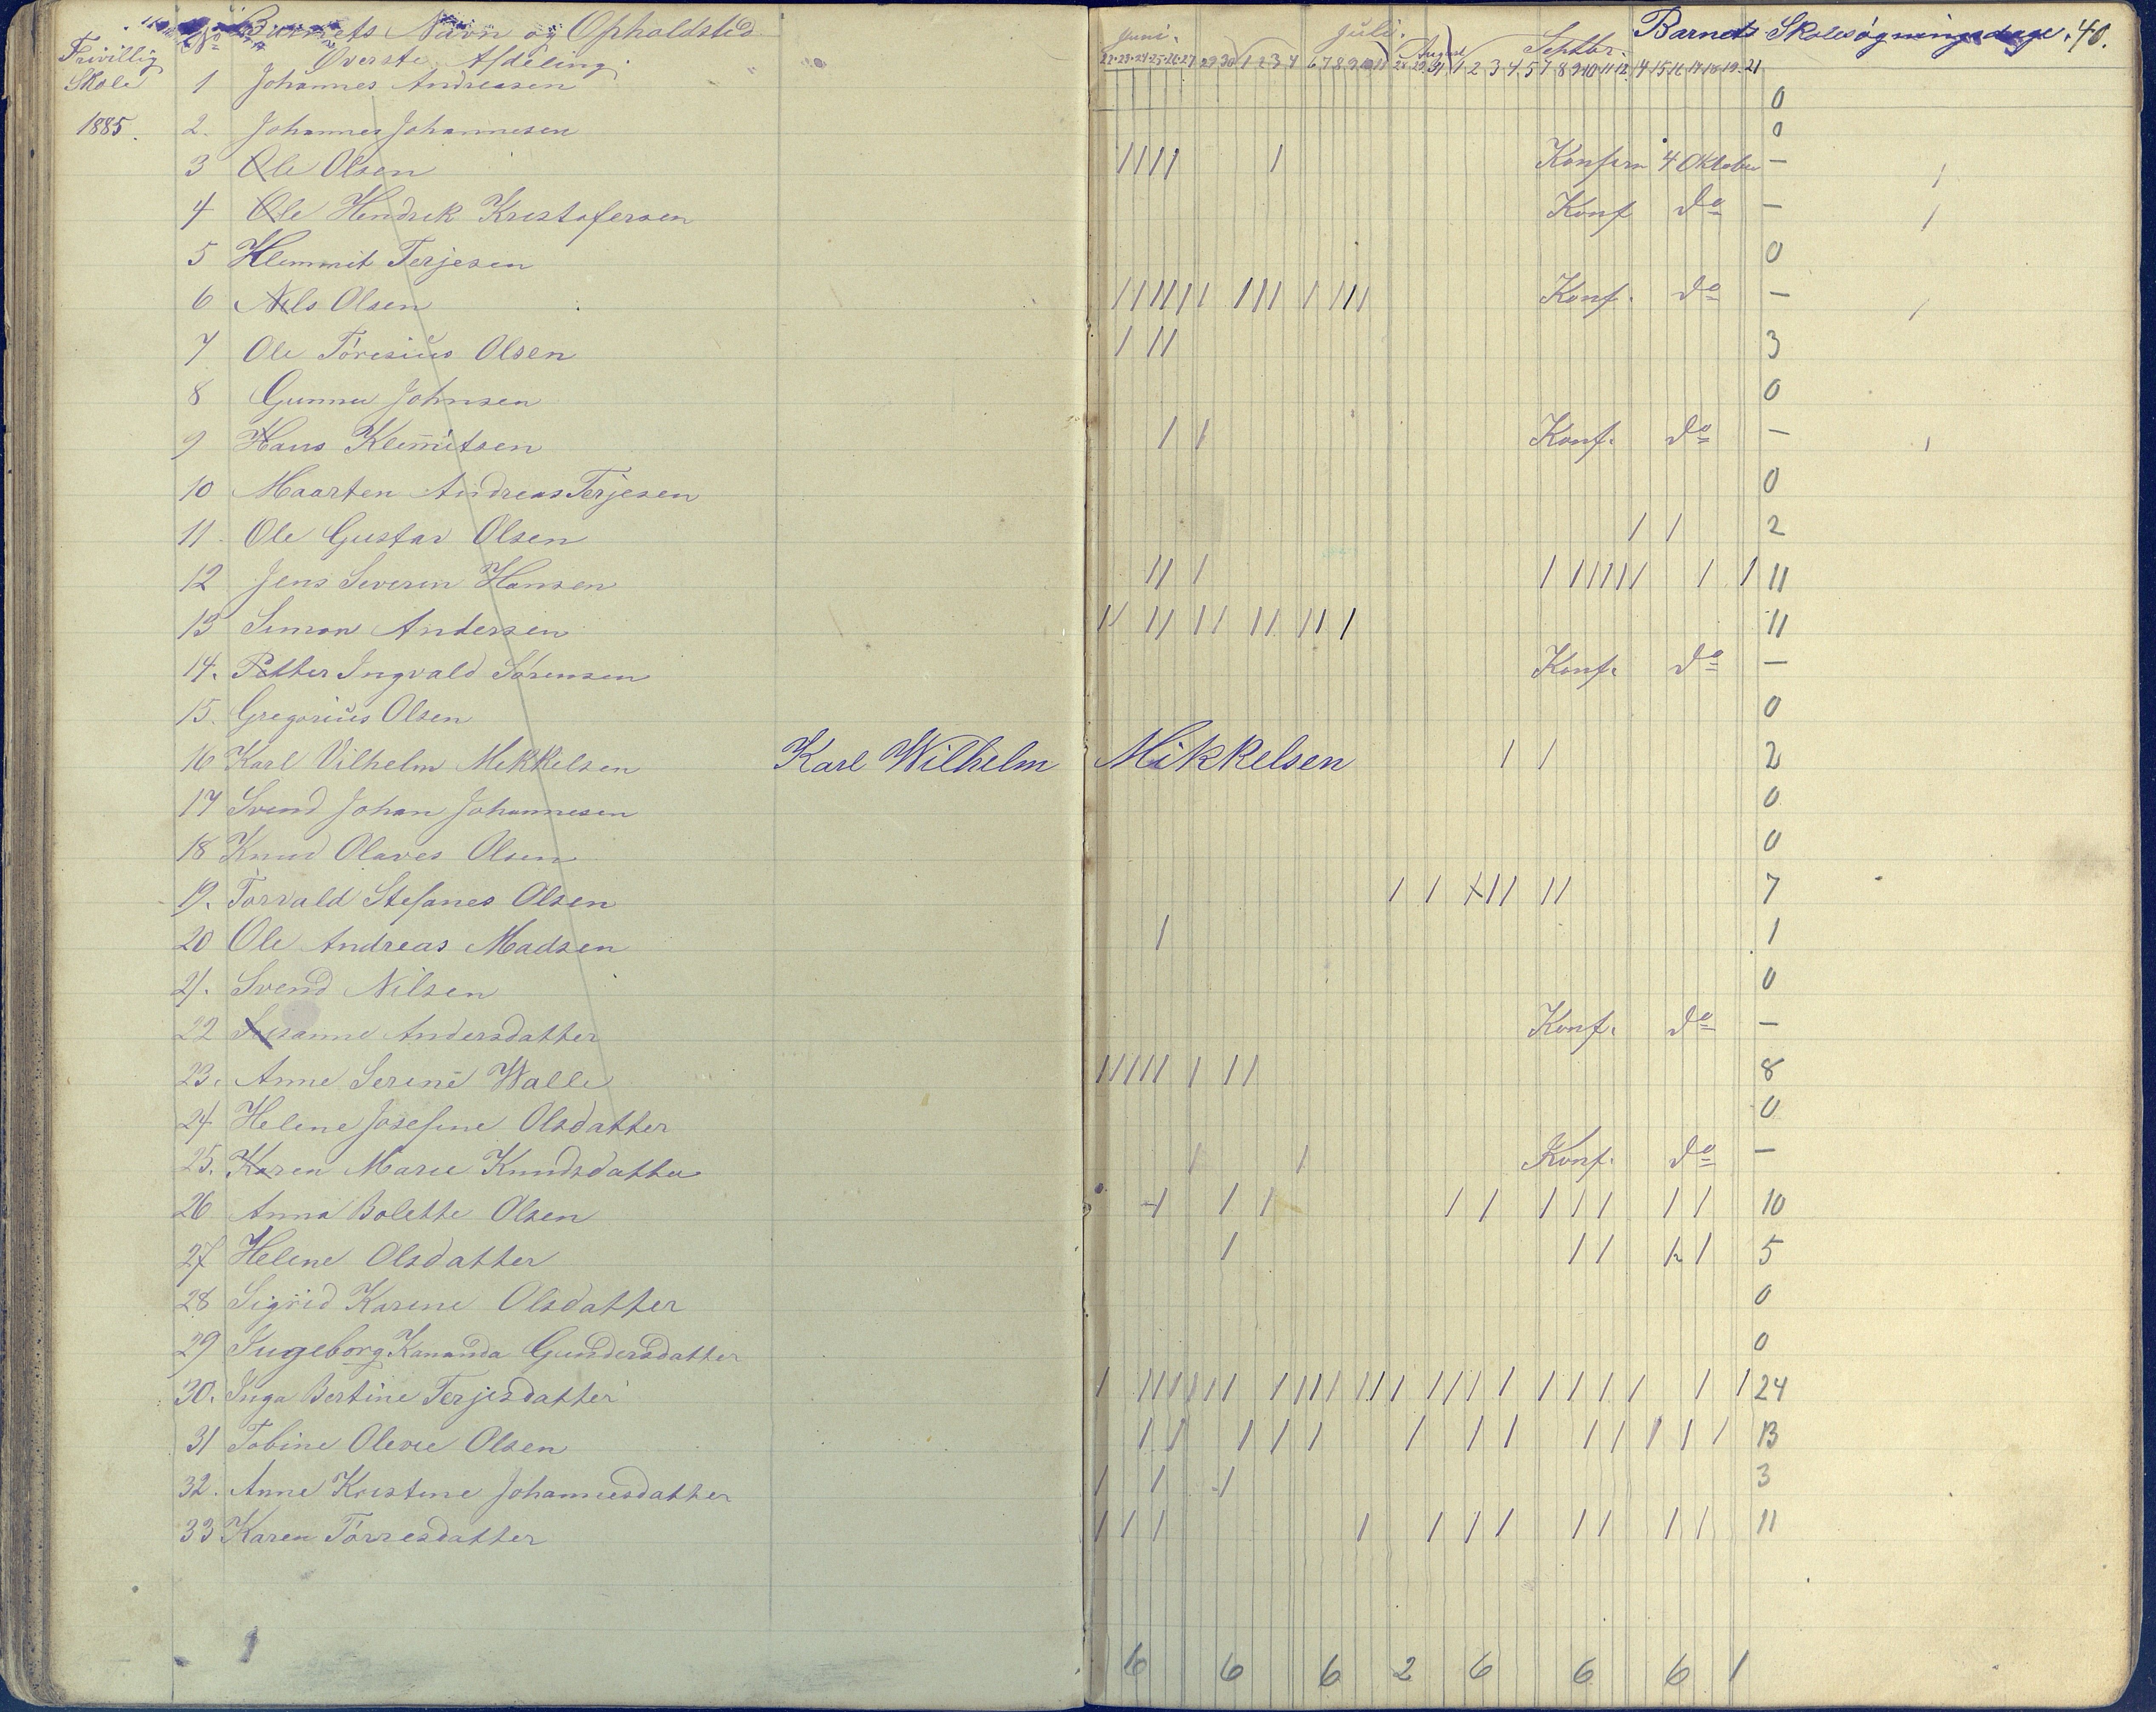 No Barnets Navn og Opholdsted
Øverste Afdeling
Frivillig
Skole
1885.
1 Johannes Andreasen
2. Johannes Johannesen
3 Ole Olsen
4 Ole Hendrik Kristofersen
5 Klemmit Terjesen
6 Nils Olsen
7 Ole Töresius Olsen
8 Gunner Johnsen
9 Hans Klemitsen
10 Maarten Andreas Terjesen
11. Ole Gustav Olsen
12 Jens Severin Hansen
13 Simon Andersen
14. Petter Ingvald Sörensen
15. Gregorius Olsen
16 Karl Vilhelm Mikkelsen Karl Wilhelm
17 Svend Johan Johannesen
18 Knud Olaves Olsen
19. Torvald Stefanes Olsen
20 Ole Andreas Madsen
21. Svend Nilsen
22 Susanne Andersdatter
23. Anne Serine Walle
24 Helene Josefine Olsdatter
25. Karen Marie Knudsdatter
26 Anna Bolette Olsen
27 Helene Olsdatter
28 Sigrid Karine Olsdatter
29 Ingeborg Kananda Gundersdatter
30. Inga Bertine Terjesdatter
31 Tobine Olevie Olsen
32. Anne Kristine Johannesdatter
33 Karen Törresdatter
Barnets Skolesøgningsdage. 40.
Juni. Juli. August Septbr.
22 23 24 25 26 27 29 30 1 2 3 4 6 7 8 9 10 11 28 29 31 1 2 3 4 5 7 8 9 10 11 12 14 15 16 17 18 19 21
0
0
//// / Konfirm 4 Oktober —
Konf do —
0
////// /// / /// Konf. do —
/ // 3
0
/ / Konf. do —
0
/ / 2
// / / ///// / / 11
// // // // // / 11
Konf. do —
0
Mikkelsen / / 2
0
0
/ / /// // 7
/ 1
0
Konf. do —
///// / // 8
0
/ / Konf. do —
/ / / / / / / / / / 10
/ / / / / 5
0
0
24
13
/ / / 3
/ / / / / / / / / / / 11
6 6 6 2 6 6 6 1